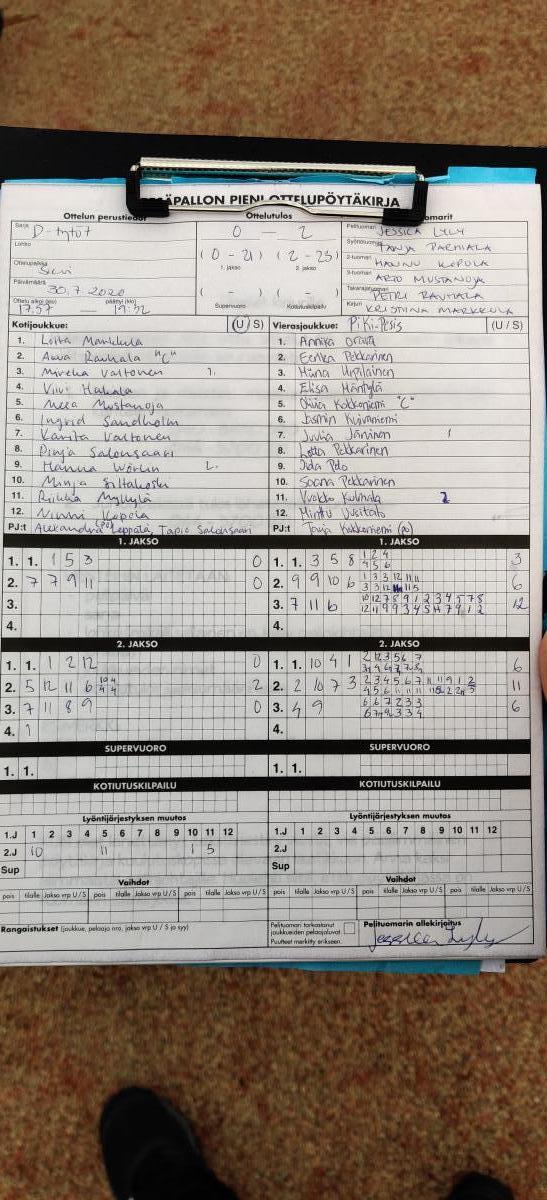 PESÄPALLON PIENI OTTELUPÖYTÄKIRJA
Ottelun perustiedot
Ottelutulos
Sarja D-tytöt
Lohko
Ottelupaikka Sievi
Päivämäärä 30.7.2020
Ottelu alkoi (klo) päättyi (klo)
17:57 — 19:52
0 — 2
( 0 - 21 ) ( 2 - 23 )
1. jakso 2. jakso
( - ) ( - )
Supervuoro Kotiutuskilpailu
Pelituomari JESSICA LYLY
Syöttötuomari TANJA PARHIALA
2-tuomari HANNU KOPOLA
3-tuomari ARTO MUSTANOJA
Takarajatuomari PETRI RAUHALA
Kirjuri KRISTIINA MARKKULA
Kotijoukkue: (U/S)
1. Lotta Markkula
2. Aava Rauhala "C"
3. Mirella Valtonen 1.
4. Viivi Hakala
5. Meea Mustanoja
6. Ingrid Sandholm
7. Varita Valtonen
8. Pinja Salonsaari
9. Hanna Wörlin
10. Minja Siltakoski
11. Riikka Myllylä
12. Ninni Kopola
PJ:t Alexandra Leppälä, Tapio Salonsaari
Vierasjoukkue: PiKi-Pesis (U/S)
1. Annika Orava
2. Eerika Pekkarinen
3. Miina Urpilainen
4. Elisa Mäntylä
5. Olivia Kokkoniemi "C"
6. Jasmin Kuivaniemi
7. Juulia Jäminen 1
8. Lotta Pekkarinen
9. Iida Pelo
10. Saana Pekkarinen
11. Vuokko Kulmala 2
12. Minttu Uusitalo
PJ:t Tanja Kokkoniemi (PJ)
1. JAKSO
1. 1. 1 5 3 0
2. 7 7 9 11 0
3.
4.
1. JAKSO
1. 1. 3 5 8 1 2 4 3
4 5 6
2. 9 9 10 6 6
3. 7 11 6 12
4.
2. JAKSO
1. 1. 1 2 12 0
2. 5 12 11 6 10 4 2
3. 7 11 8 9 0
4. 1
2. JAKSO
1. 1. 10 4 1 6
2. 2 10 7 3 11
3. 4 9 6 6 7 2 3 3 6
4.
SUPERVUORO
1. 1.
SUPERVUORO
1. 1.
KOTIUTUSKILPAILU
KOTIUTUSKILPAILU
Lyöntijärjestyksen muutos
1.J 1 2 3 4 5 6 7 8 9 10 11 12
2.J 10 11 1 5
Sup
Lyöntijärjestyksen muutos
1.J 1 2 3 4 5 6 7 8 9 10 11 12
2.J
Sup
Vaihdot
pois tilalle Jakso vrp U / S pois tilalle Jakso vrp U / S pois tilalle Jakso vrp U / S
Vaihdot
pois tilalle Jakso vrp U / S pois tilalle Jakso vrp U / S pois tilalle Jakso vrp U / S
Rangaistukset (joukkue, pelaaja nro, jakso vrp U / S ja syy)
Pelituomari tarkastanut
joukkueiden pelaajaluvat
Puutteet merkitty erikseen.
Pelituomarin allekirjoitus
Jessica Lyly